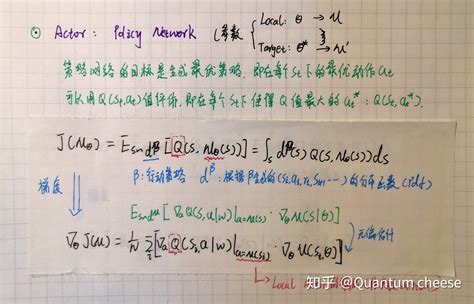 ⊙ Actor: Policy Network (参数 { Local: θ → μ
Target: θ* → μ'
策略网络的目标是生成最优策略,即在每个St下的最优动作at
可以用Q(St,at)值评价,即在每个St下使得Q值最大的at*: Q(St,at*).
J(μθ) = E_{s~d^β}[Q(s,μθ(s))] = ∫_s d^β(s) Q(s,μθ(s)) ds
β:行动策略 d^β:根据β生成的(St,at,rt,St+1…)的分布函数(pdf)
梯度
E_{s~d^μ}[∇a Q(s,a|w)|a=μ(s) · ∇θ μ(s|θ)]
∇θ J(μ) = 1/N Σ[∇a Q(s,a|w)|a=μ(s) · ∇θ μ(s,θ)] 无偏估计
Local
知乎 @Quantum cheese